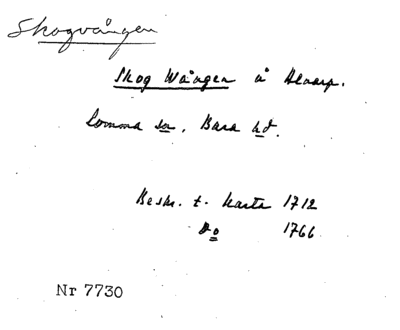 Skogvången
Skog Wången å Alnarp.
Lomma sn, Bara hd.
Beskr. t. karta 1712
Do 1766
Nr 7730